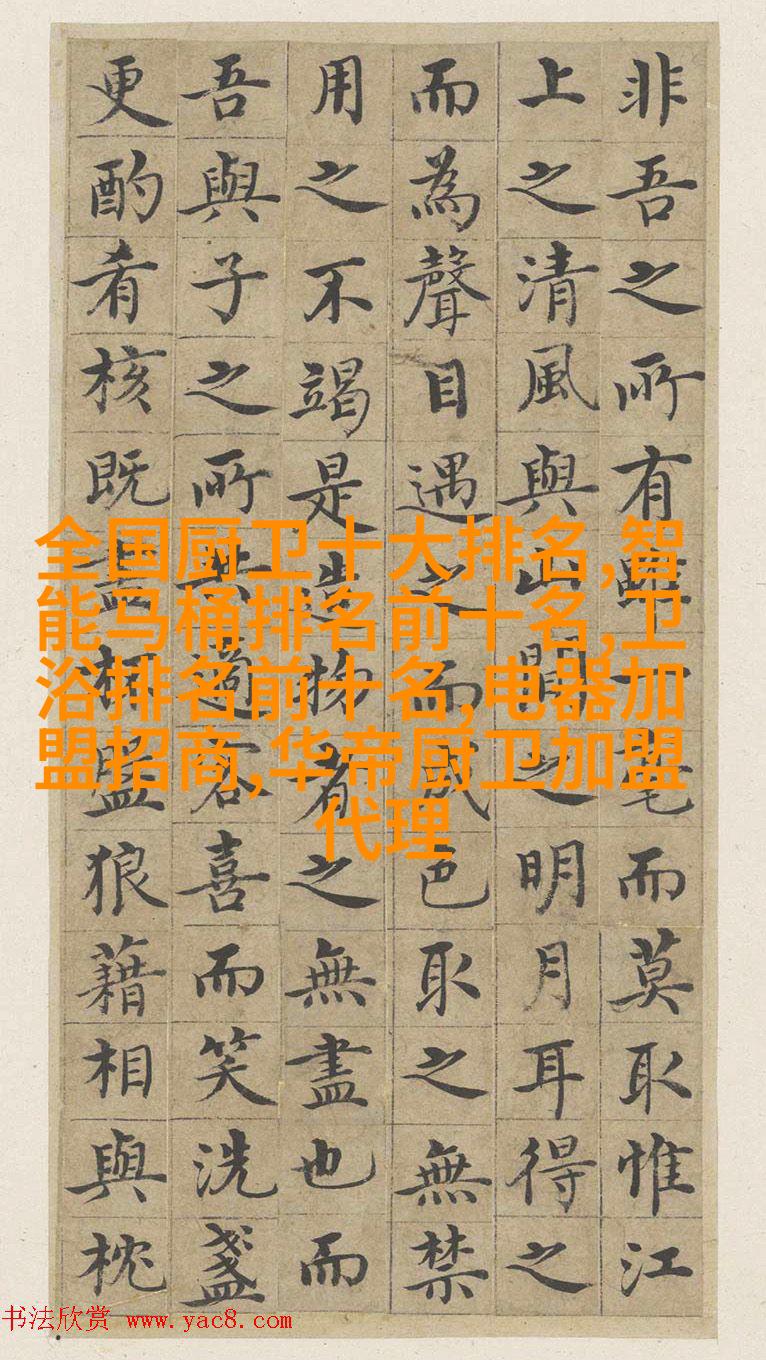 非吾之所有雖一毫而莫取惟江
上之清風與山間之明月耳得之
而為聲目遇之而成色取之無禁
用之不竭是造物者之無盡也而
吾與子之所共適客喜而笑洗盞
更酌肴核既盡杯盤狼藉相與枕
全国厨卫十大排名,智
能马桶排名前十名,卫
浴排名前十名,电器加
盟招商,华帝厨卫加盟
代理
书法欣赏 www.yac8.com